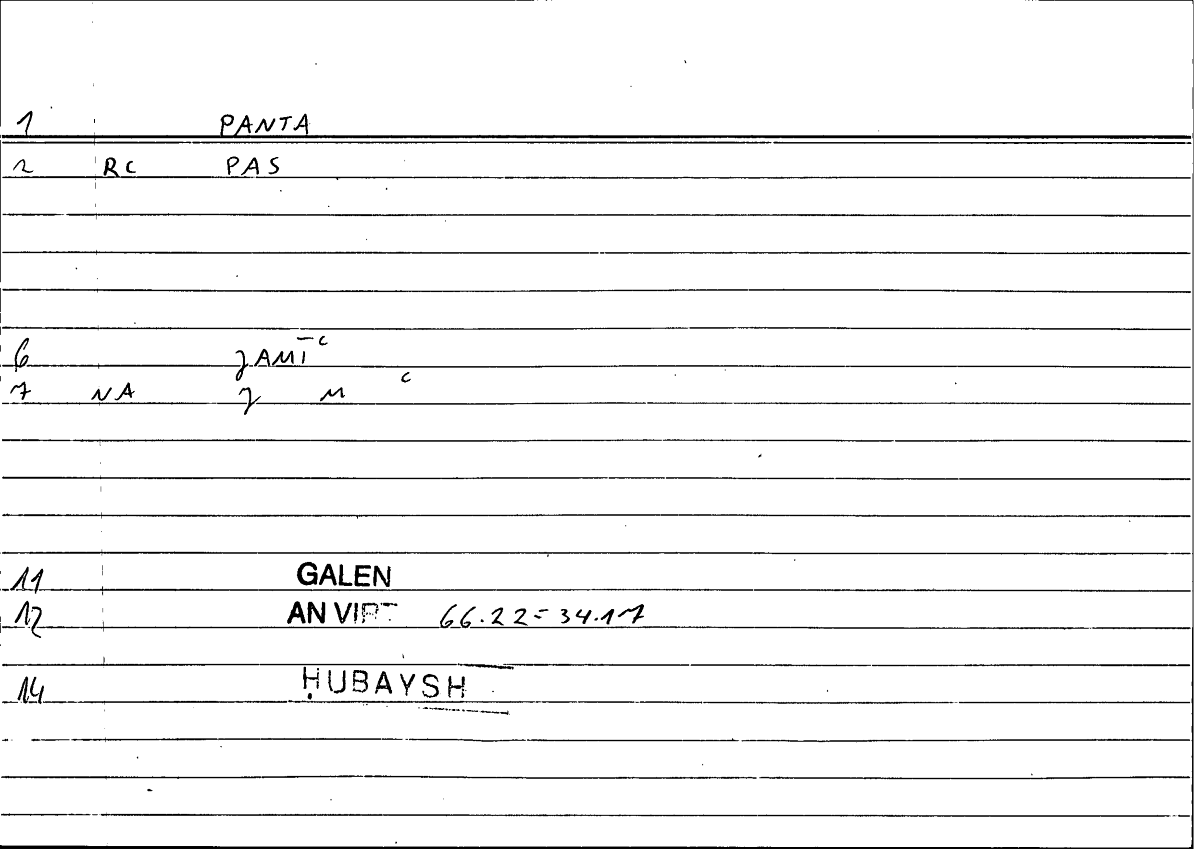 1 PANTA
2 RC PAS
6 ʒAMĪᶜ
7 NA ʒ M ᶜ
11 GALEN
12 AN VIRT 66.22=34.17
14 ḤUBAYSH